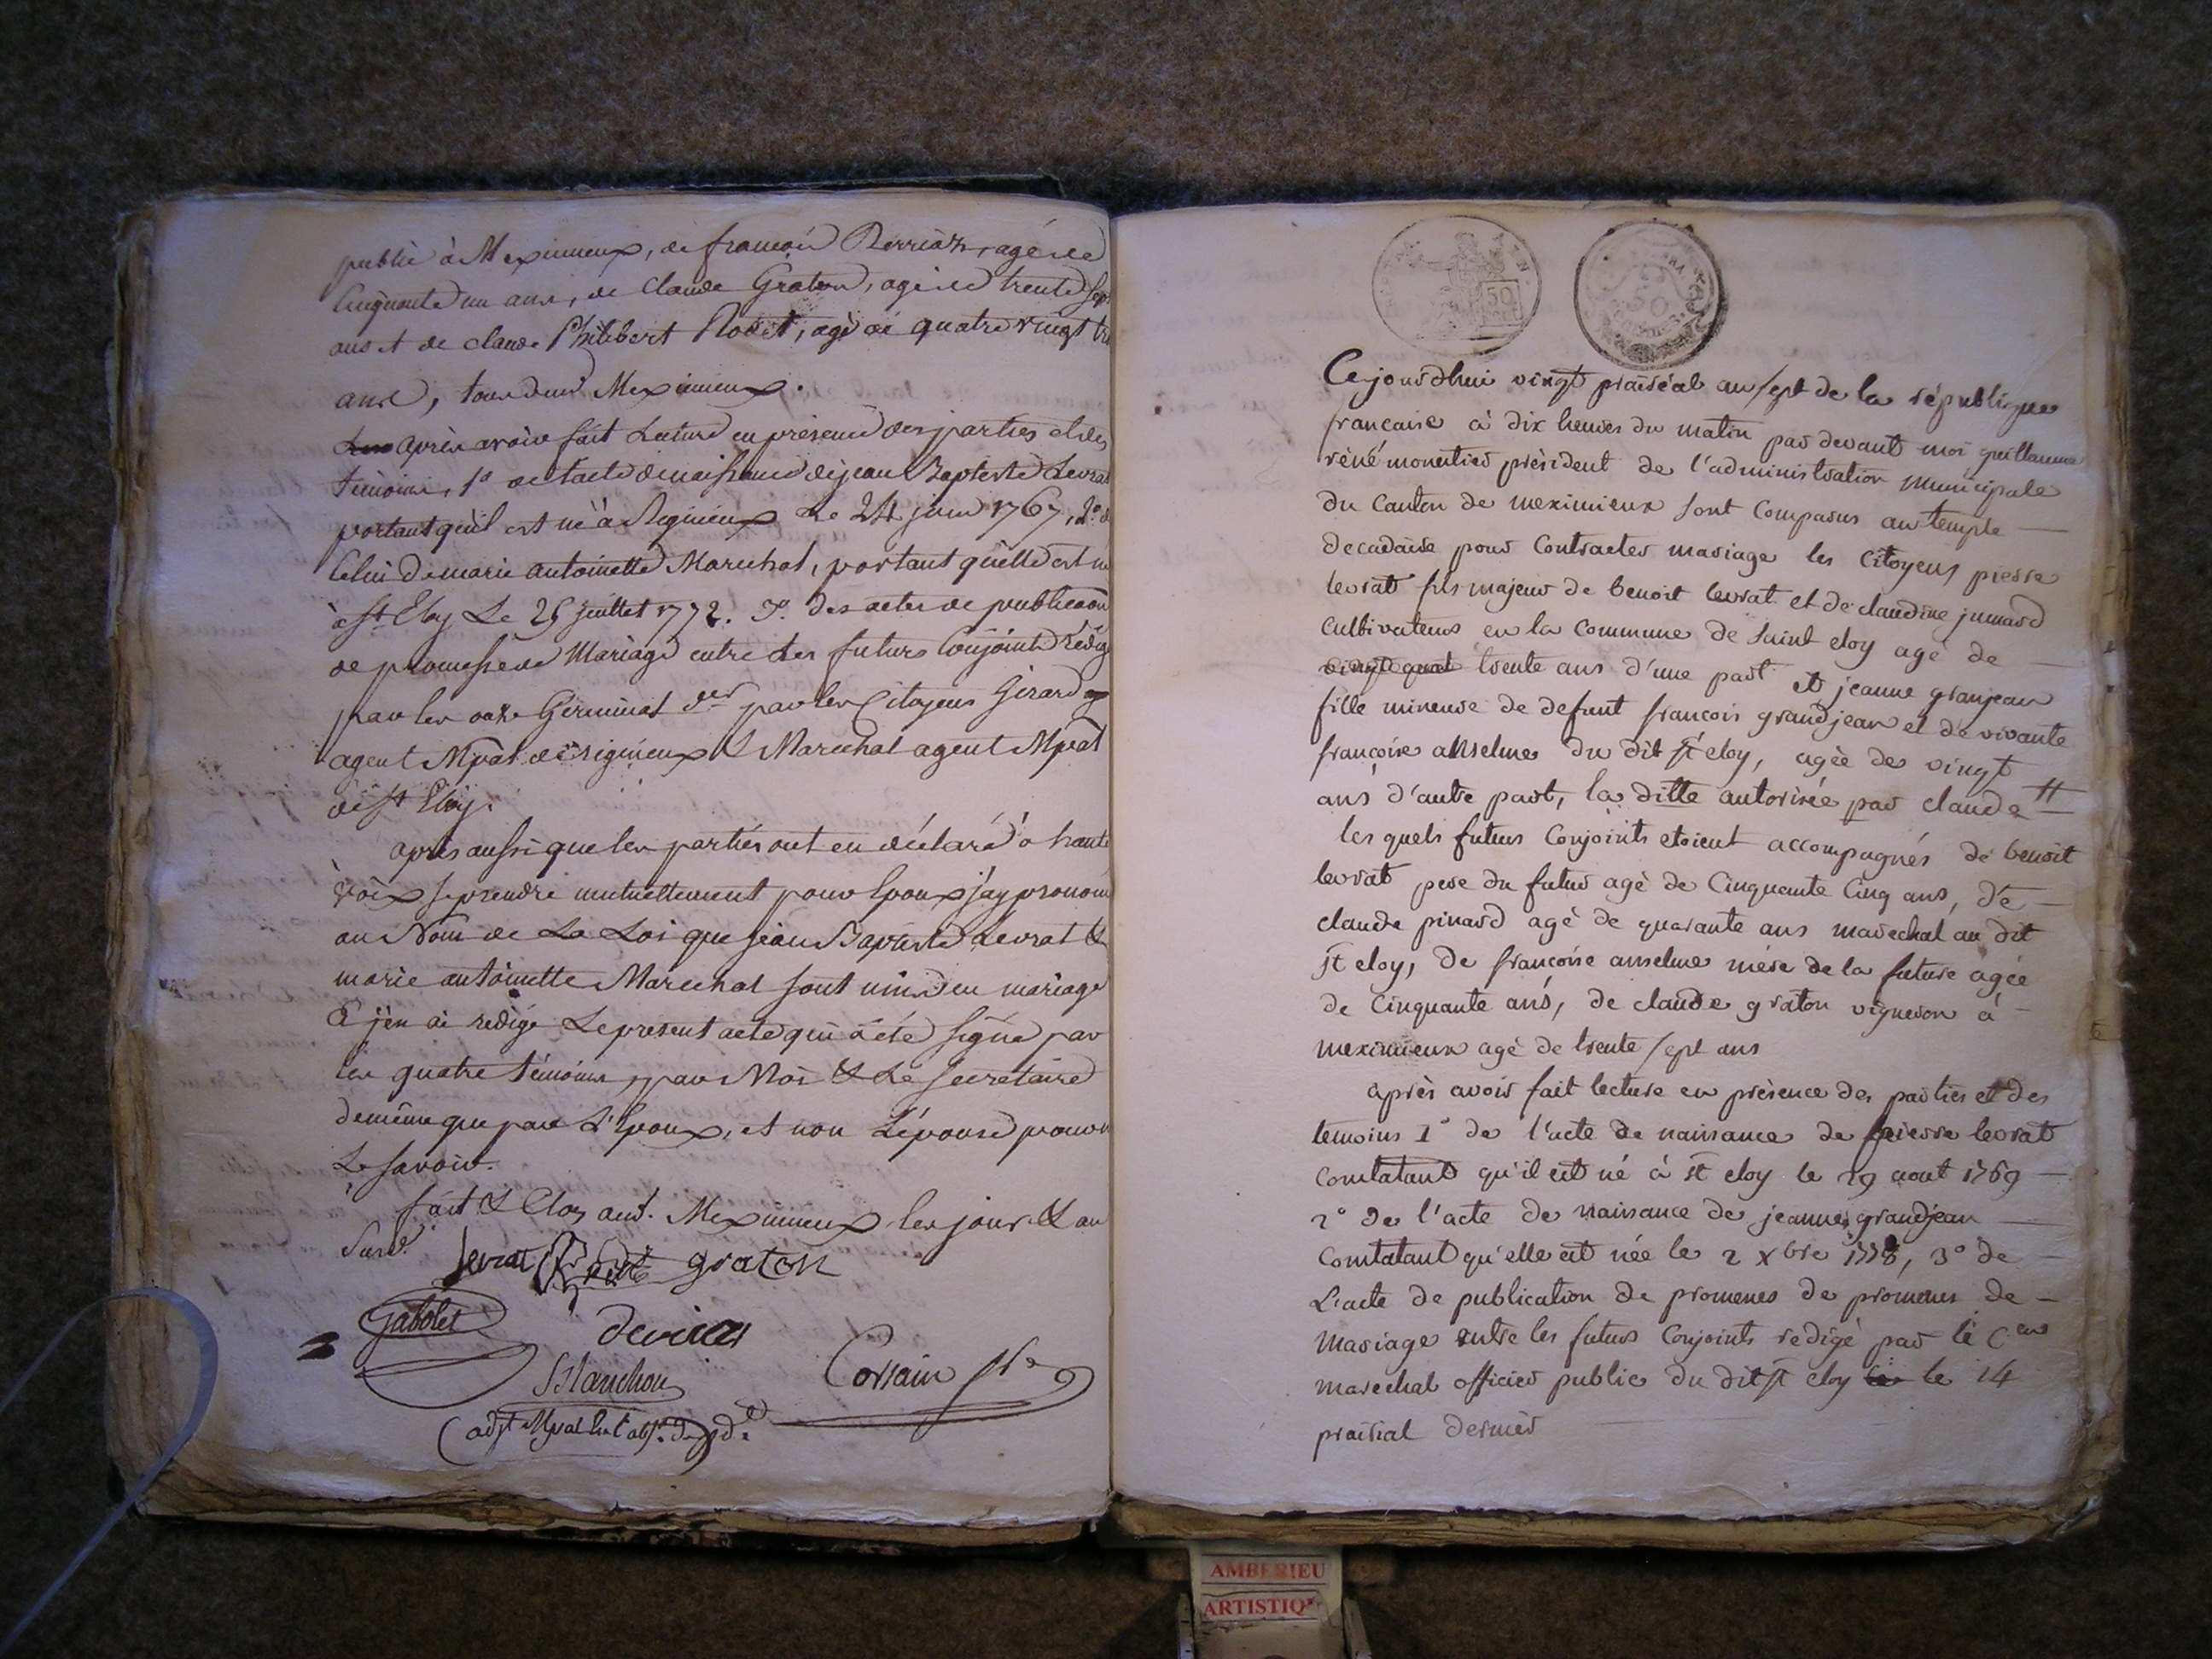 publié à Meximieux, de françois Perriat, agé de
Cinquante un ans, de Claude Graton, agé de trente sep
ans et de claude Philibert Rodet, agé de quatre vingt tr
ans, tous dud. Meximieux.
après avoir fait Lecture en présence des parties et des
témoins, 1° de l'acte de naissance de jean Baptiste Levrat
portant qu'il est né à Rigneux Le 24 juin 1767, 2° d
Celui de marie antoinette Marechal, portant qu'elle est né
à St Eloy Le 25 juillet 1772. 3° des actes de publication
de promesse de Mariage entre Les futurs Conjoints Rédigé
par les onze Germinal der par les Citoyens Girard
agent Mpal de rigneux & Marechal agent Mpal
de St Eloy.
après aussi que les parties ont eu déclaré à haute
voix se prendre mutuellement pour Epoux j'ay prononcé
au Nom de La Loi que jean Baptiste Levrat &
marie antoinette Marechal sont unis en mariage
& j'en ai redigé Le present acte qui a été signé par
les quatre témoins, par Moi & Le Secretaire
de même que par L'Epoux, et non L'épouse pour n
Le savoir.
fait & Clos aud. Meximieux les jour & an
Susd.
Levrat graton
Gabolet
Blanchon
Corsain Sre
50
50
Cejourdhui vingt prairéal an sept de la république
francaise à dix heures du matin par devant moi guillaume
réné monetier président de l'administration municipale
du Canton de meximieux sont Comparus au temple —
decadaire pour Contracter mariage les Citoyens pierre
levrat fils majeur de benoit levrat et de claudine junard
Cultivateurs en la Commune de saint eloy agé de
vingt quat trente ans d'une part et jeanne granjean
fille mineure de defunt francois grandjean et de vivante
françoise anselme du dit st eloy, agée de vingt
ans d'autre part, la ditte autorisée par claude #
les quels futurs Conjoints etoient accompagnés de benoit
levrat pere du futur agé de Cinquante Cinq ans, de —
claude pinard agé de quarante ans marechal au dit
st eloy, de francoise anselme mére de la future agée
de Cinquante ans, de claude graton vigneron à —
meximieux agé de trente sept ans
après avoir fait lecture en présence des parties et des
temoins 1° de l'acte de naissance de pierre levrat
Constatant qu'il est né à st eloy le 29 aout 1769 —
2° de l'acte de naissance de jeanne grandjean —
Constatant qu'elle est née le 2 xbre 1778, 3° de —
L'acte de publication de promesses de promesses de —
mariage entre les futurs Conjoints redigé par le Cen
marechal officier public du dit st eloy le le 14
prairial dernier
AMBERIEU
ARTISTIQ